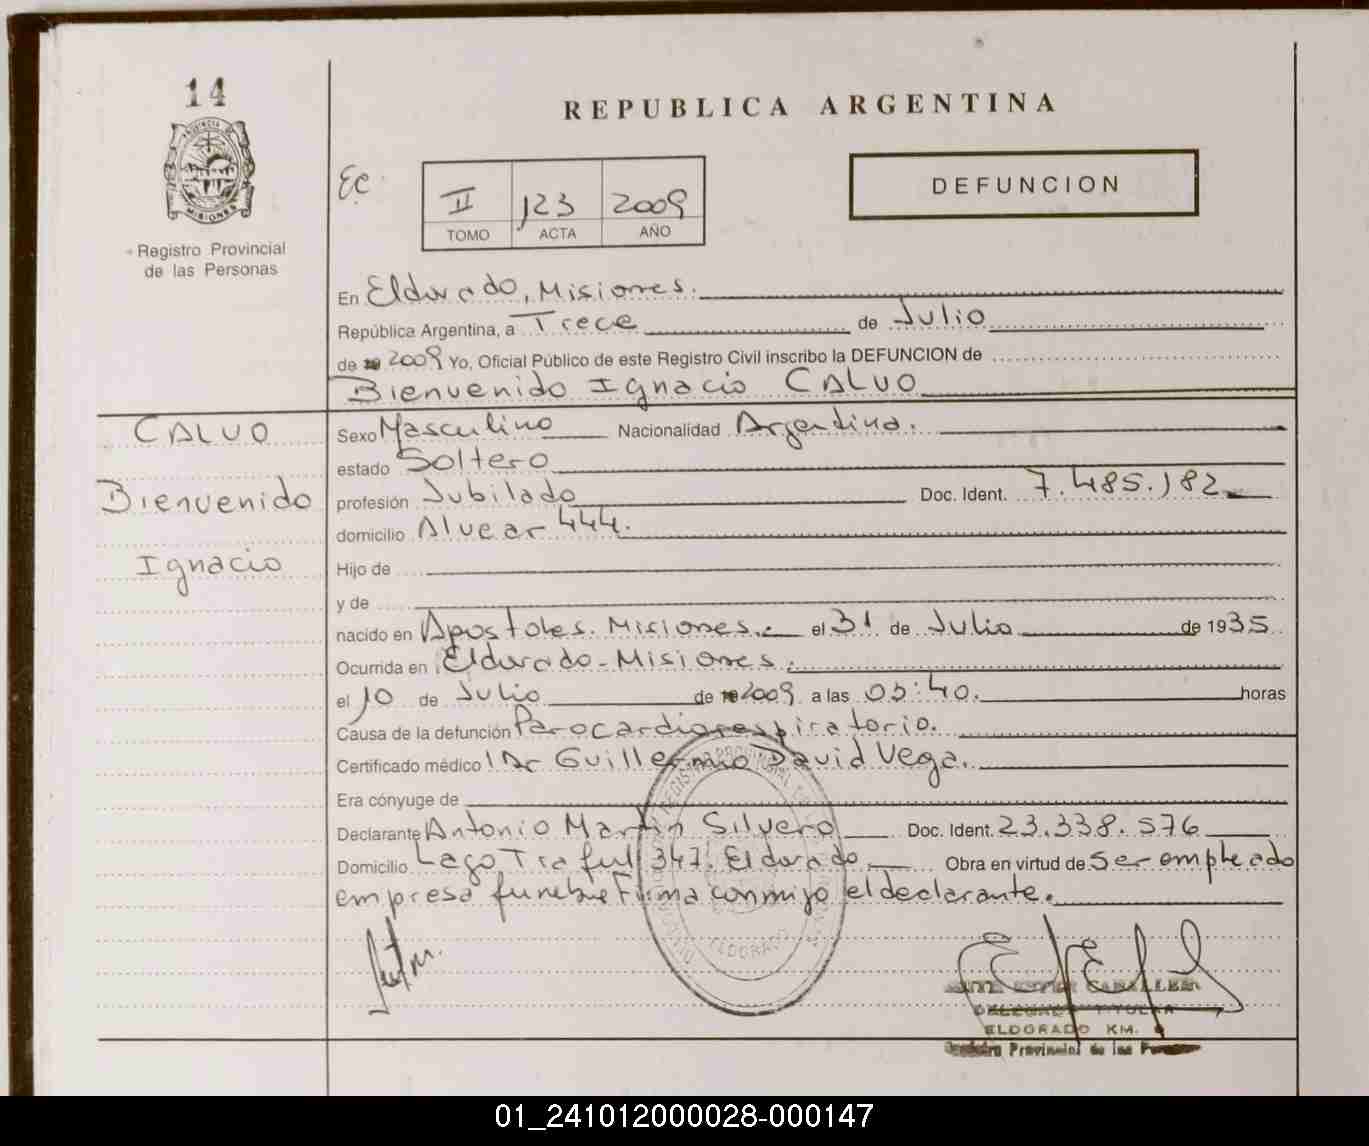 14
PROVINCIA DE
MISIONES
Registro Provincial
de las Personas
REPUBLICA ARGENTINA
Ec
II 123 2009
TOMO ACTA AÑO
DEFUNCION
En Eldorado, Misiones.
República Argentina, a Trece de Julio
de 2009 Yo, Oficial Público de este Registro Civil inscribo la DEFUNCION de
Bienvenido Ignacio CALVO
CALVO
Bienvenido
Ignacio
Sexo Masculino Nacionalidad Argentina.
estado Soltero
profesión Jubilado Doc. Ident. 7.485.182
domicilio Alvear 444.
Hijo de
y de
nacido en Apostoles. Misiones. el 31 de Julio de 1935
Ocurrida en Eldorado - Misiones.
el 10 de Julio de 2009 a las 05:40. horas
Causa de la defunción Parocardiorespiratorio.
Certificado médico Dr Guillermo David Vega.
Era cónyuge de
Declarante Antonio Martin Silvero Doc. Ident. 23.338.576
Domicilio Lago Traful 347. Eldorado Obra en virtud de Ser empleado
empresa funebre Firma conmigo el declarante.
REGISTRO PROVINCIAL
ELDORADO
CABALLERO
DELEGADO TITULAR
ELDORADO KM.
Registro Provincial de las Personas
01_241012000028-000147